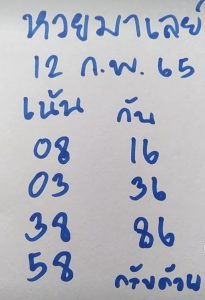 หวยมาเลย์
12 ก.พ. 65
เน้น กัน
08 16
03 36
38 86
58 กลับด้วย